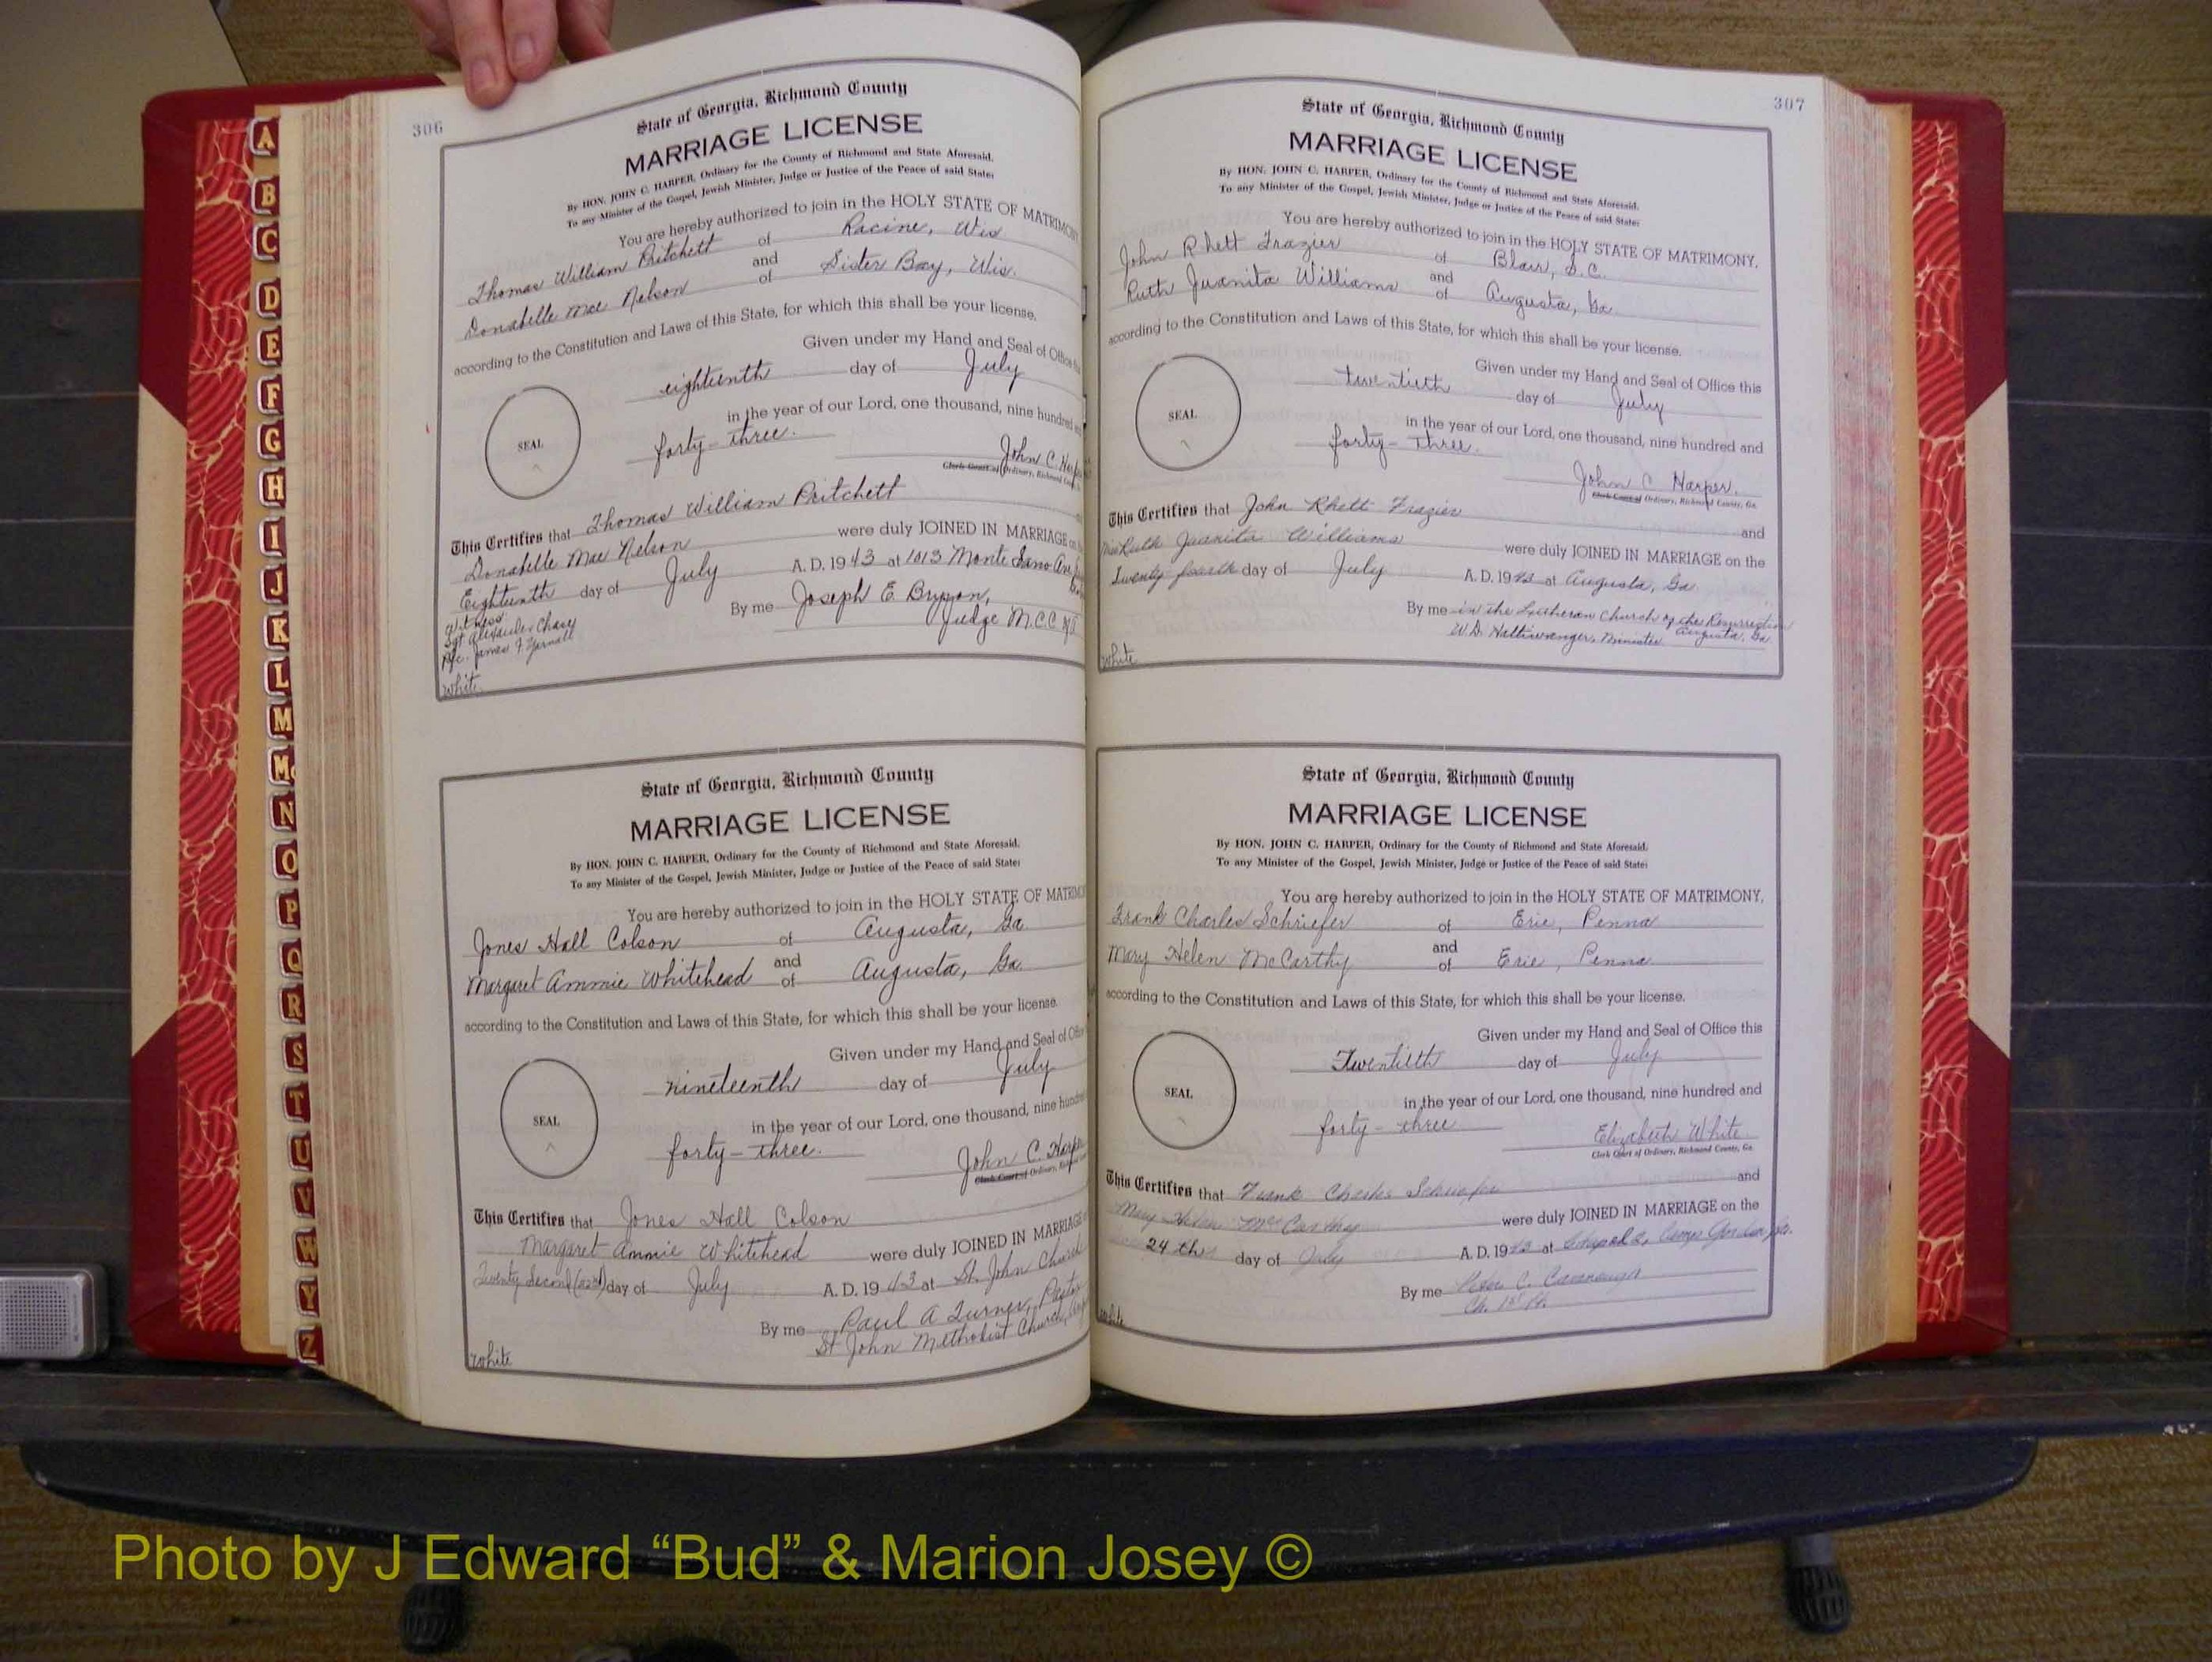 306
State of Georgia, Richmond County
MARRIAGE LICENSE
By HON. JOHN C. HARPER, Ordinary for the County of Richmond and State Aforesaid.
To any Minister of the Gospel, Jewish Minister, Judge or Justice of the Peace of said State:
You are hereby authorized to join in the HOLY STATE OF MATRIMONY
Thomas William Pritchett of Racine, Wis
and
Donabelle Mae Nelson of Sister Bay, Wis.
according to the Constitution and Laws of this State, for which this shall be your license.
Given under my Hand and Seal of Office
eighteenth day of July
in the year of our Lord, one thousand, nine hundred
forty-three.
SEAL
John C. Harper
Clerk Court of Ordinary, Richmond
This Certifies that Thomas William Pritchett
Donabelle Mae Nelson were duly JOINED IN MARRIAGE on
Eighteenth day of July A. D. 1943 at 1013 Monte Sano Ave
By me Joseph E. Bryson,
Judge M.C.C.
Witness
Sgt Alexander Chasy
Pfc. James F. Yarnall
white
State of Georgia, Richmond County
MARRIAGE LICENSE
By HON. JOHN C. HARPER, Ordinary for the County of Richmond and State Aforesaid.
To any Minister of the Gospel, Jewish Minister, Judge or Justice of the Peace of said State:
You are hereby authorized to join in the HOLY STATE OF MATRIMO
Jones Hall Colson of Augusta, Ga
and
Margaret Ammie Whitehead of Augusta, Ga.
according to the Constitution and Laws of this State, for which this shall be your license.
Given under my Hand and Seal of Office
nineteenth day of July
in the year of our Lord, one thousand, nine hundred
forty-three.
SEAL
John C. Harper
Clerk Court of Ordinary,
This Certifies that Jones Hall Colson
Margaret Ammie Whitehead were duly JOINED IN MARRIAGE
Twenty Second (22nd) day of July A. D. 1943 at St. John Church
By me Paul A Turner, Pastor
St John Methodist Church,
white
307
State of Georgia, Richmond County
MARRIAGE LICENSE
By HON. JOHN C. HARPER, Ordinary for the County of Richmond and State Aforesaid.
To any Minister of the Gospel, Jewish Minister, Judge or Justice of the Peace of said State:
You are hereby authorized to join in the HOLY STATE OF MATRIMONY,
John Rhett Frazier of Blair, S.C.
and
Ruth Juanita Williams of Augusta, Ga.
according to the Constitution and Laws of this State, for which this shall be your license.
Given under my Hand and Seal of Office this
twentieth day of July
in the year of our Lord, one thousand, nine hundred and
forty-three.
SEAL
John C Harper.
Clerk Court of Ordinary, Richmond County, Ga.
This Certifies that John Rhett Frazier and
Miss Ruth Juanita Williams were duly JOINED IN MARRIAGE on the
Twenty fourth day of July A. D. 1943 at Augusta, Ga.
By me in the Lutheran Church of the Resurrection
W.D. Haltiwanger, Minister Augusta, Ga
white
State of Georgia, Richmond County
MARRIAGE LICENSE
By HON. JOHN C. HARPER, Ordinary for the County of Richmond and State Aforesaid.
To any Minister of the Gospel, Jewish Minister, Judge or Justice of the Peace of said State:
You are hereby authorized to join in the HOLY STATE OF MATRIMONY,
Frank Charles Schriefer of Erie, Penna
and
Mary Helen McCarthy of Erie, Penna.
according to the Constitution and Laws of this State, for which this shall be your license.
Given under my Hand and Seal of Office this
Twentieth day of July
in the year of our Lord, one thousand, nine hundred and
forty-three
SEAL
Elizabeth White
Clerk Court of Ordinary, Richmond County, Ga.
This Certifies that Frank Charles Schriefer and
Mary Helen McCarthy were duly JOINED IN MARRIAGE on the
24 th day of July A. D. 1943 at Chapel 2, Camp Gordon, Ga.
By me Peter C. Cavanaugh
white
A
B
C
D
E
F
G
H
I
J
K
L
M
Mc
N
O
P
Q
R
S
T
U
V
W
Y
Z
Photo by J Edward “Bud” & Marion Josey ©